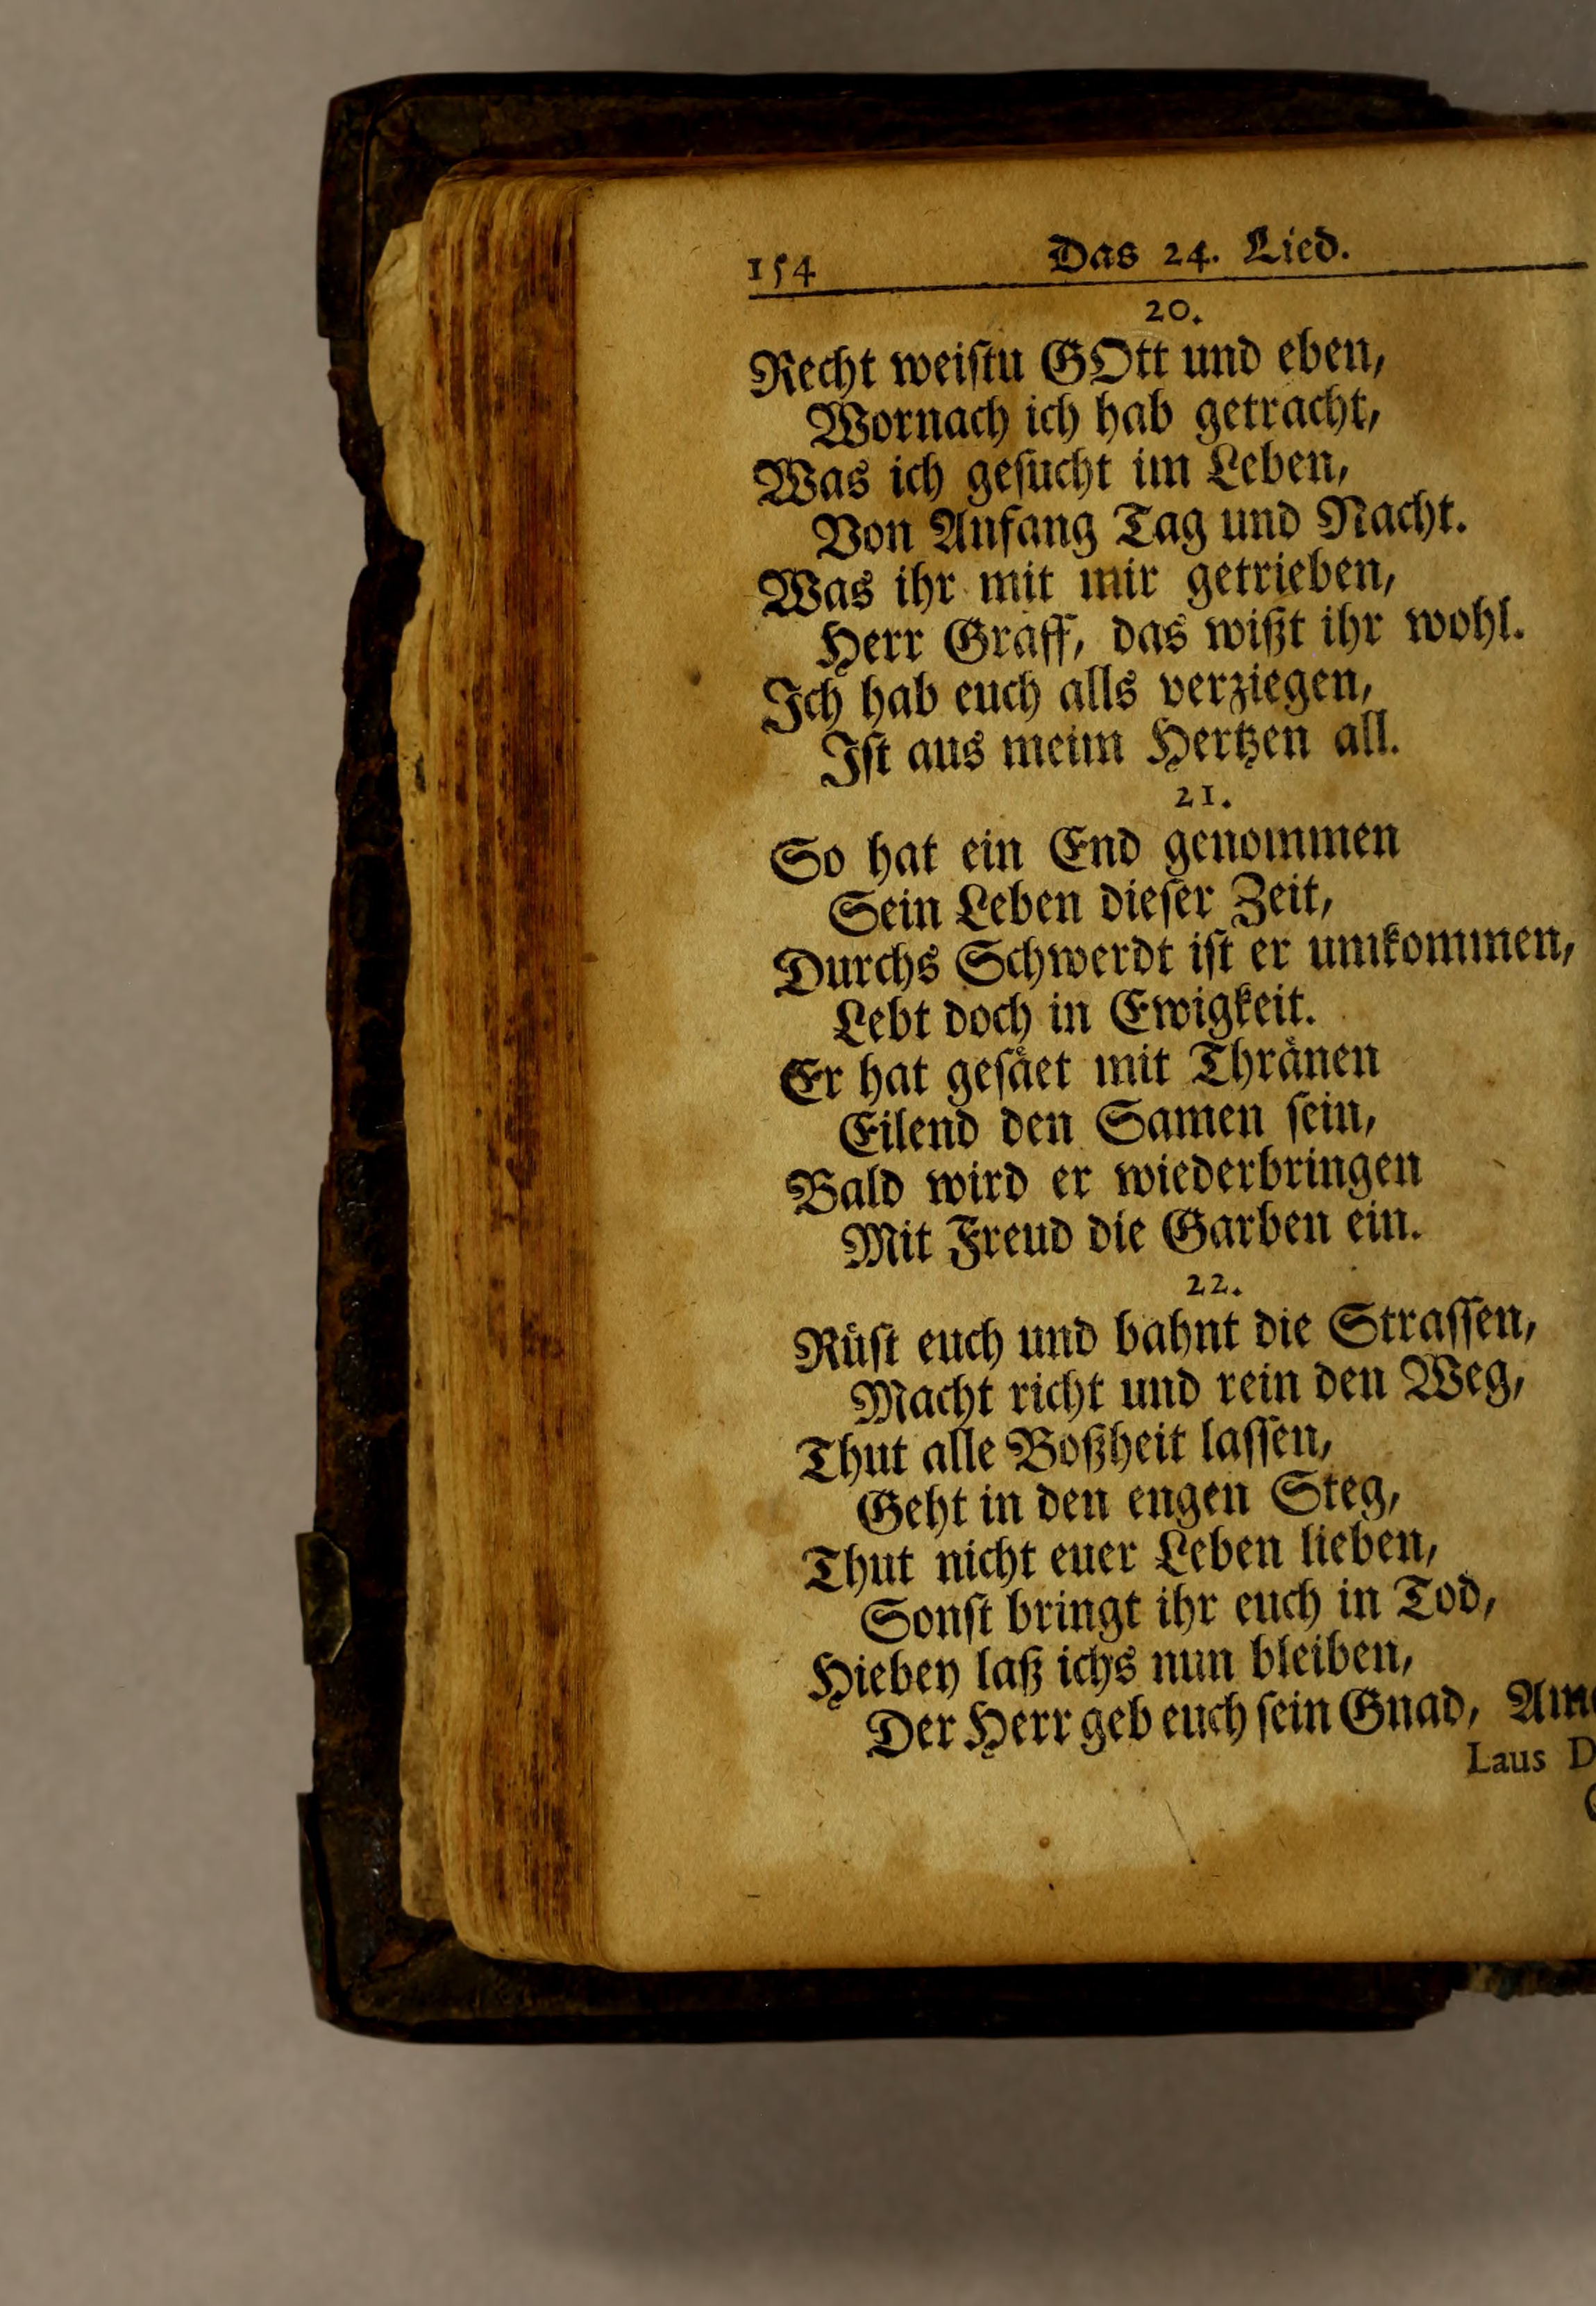 154 Das 24. Lied.
20.
Recht weiſtu GOtt und eben,
Wornach ich hab getracht,
Was ich geſucht im Leben,
Von Anfang Tag und Nacht.
Was ihr mit mir getrieben,
Herr Graff, das wißt ihr wohl.
Ich hab euch alls verziegen,
Iſt aus meim Hertzen all.
21.
So hat ein End genommen
Sein Leben dieſer Zeit,
Durchs Schwerdt iſt er umkommen,
Lebt doch in Ewigkeit.
Er hat geſaͤet mit Thraͤnen
Eilend den Samen ſein,
Bald wird er wiederbringen
Mit Freud die Garben ein.
22.
Ruͤſt euch und bahnt die Straſſen,
Macht richt und rein den Weg,
Thut alle Boßheit laſſen,
Geht in den engen Steg,
Thut nicht euer Leben lieben,
Sonſt bringt ihr euch in Tod,
Hiebey laß ichs nun bleiben,
Der Herr geb euch ſein Gnad,
Laus